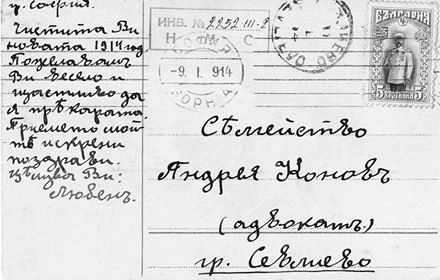 гр. София.
Честита Ви
Новата 1914 год
Пожелавамъ
Ви весело и
щастливо да
я прѣкарате.
Приемете мой
тѣ искрени
поздрави.
Ви:
Любенъ.
ИНВ. № 2252-III-9
Н Ф С
-9. I. 914
БЪЛГАРИЯ
5 СТОТИНКИ 5
Сѣмейство
Андрея Коновъ
(адвокатъ)
гр. Севлиево